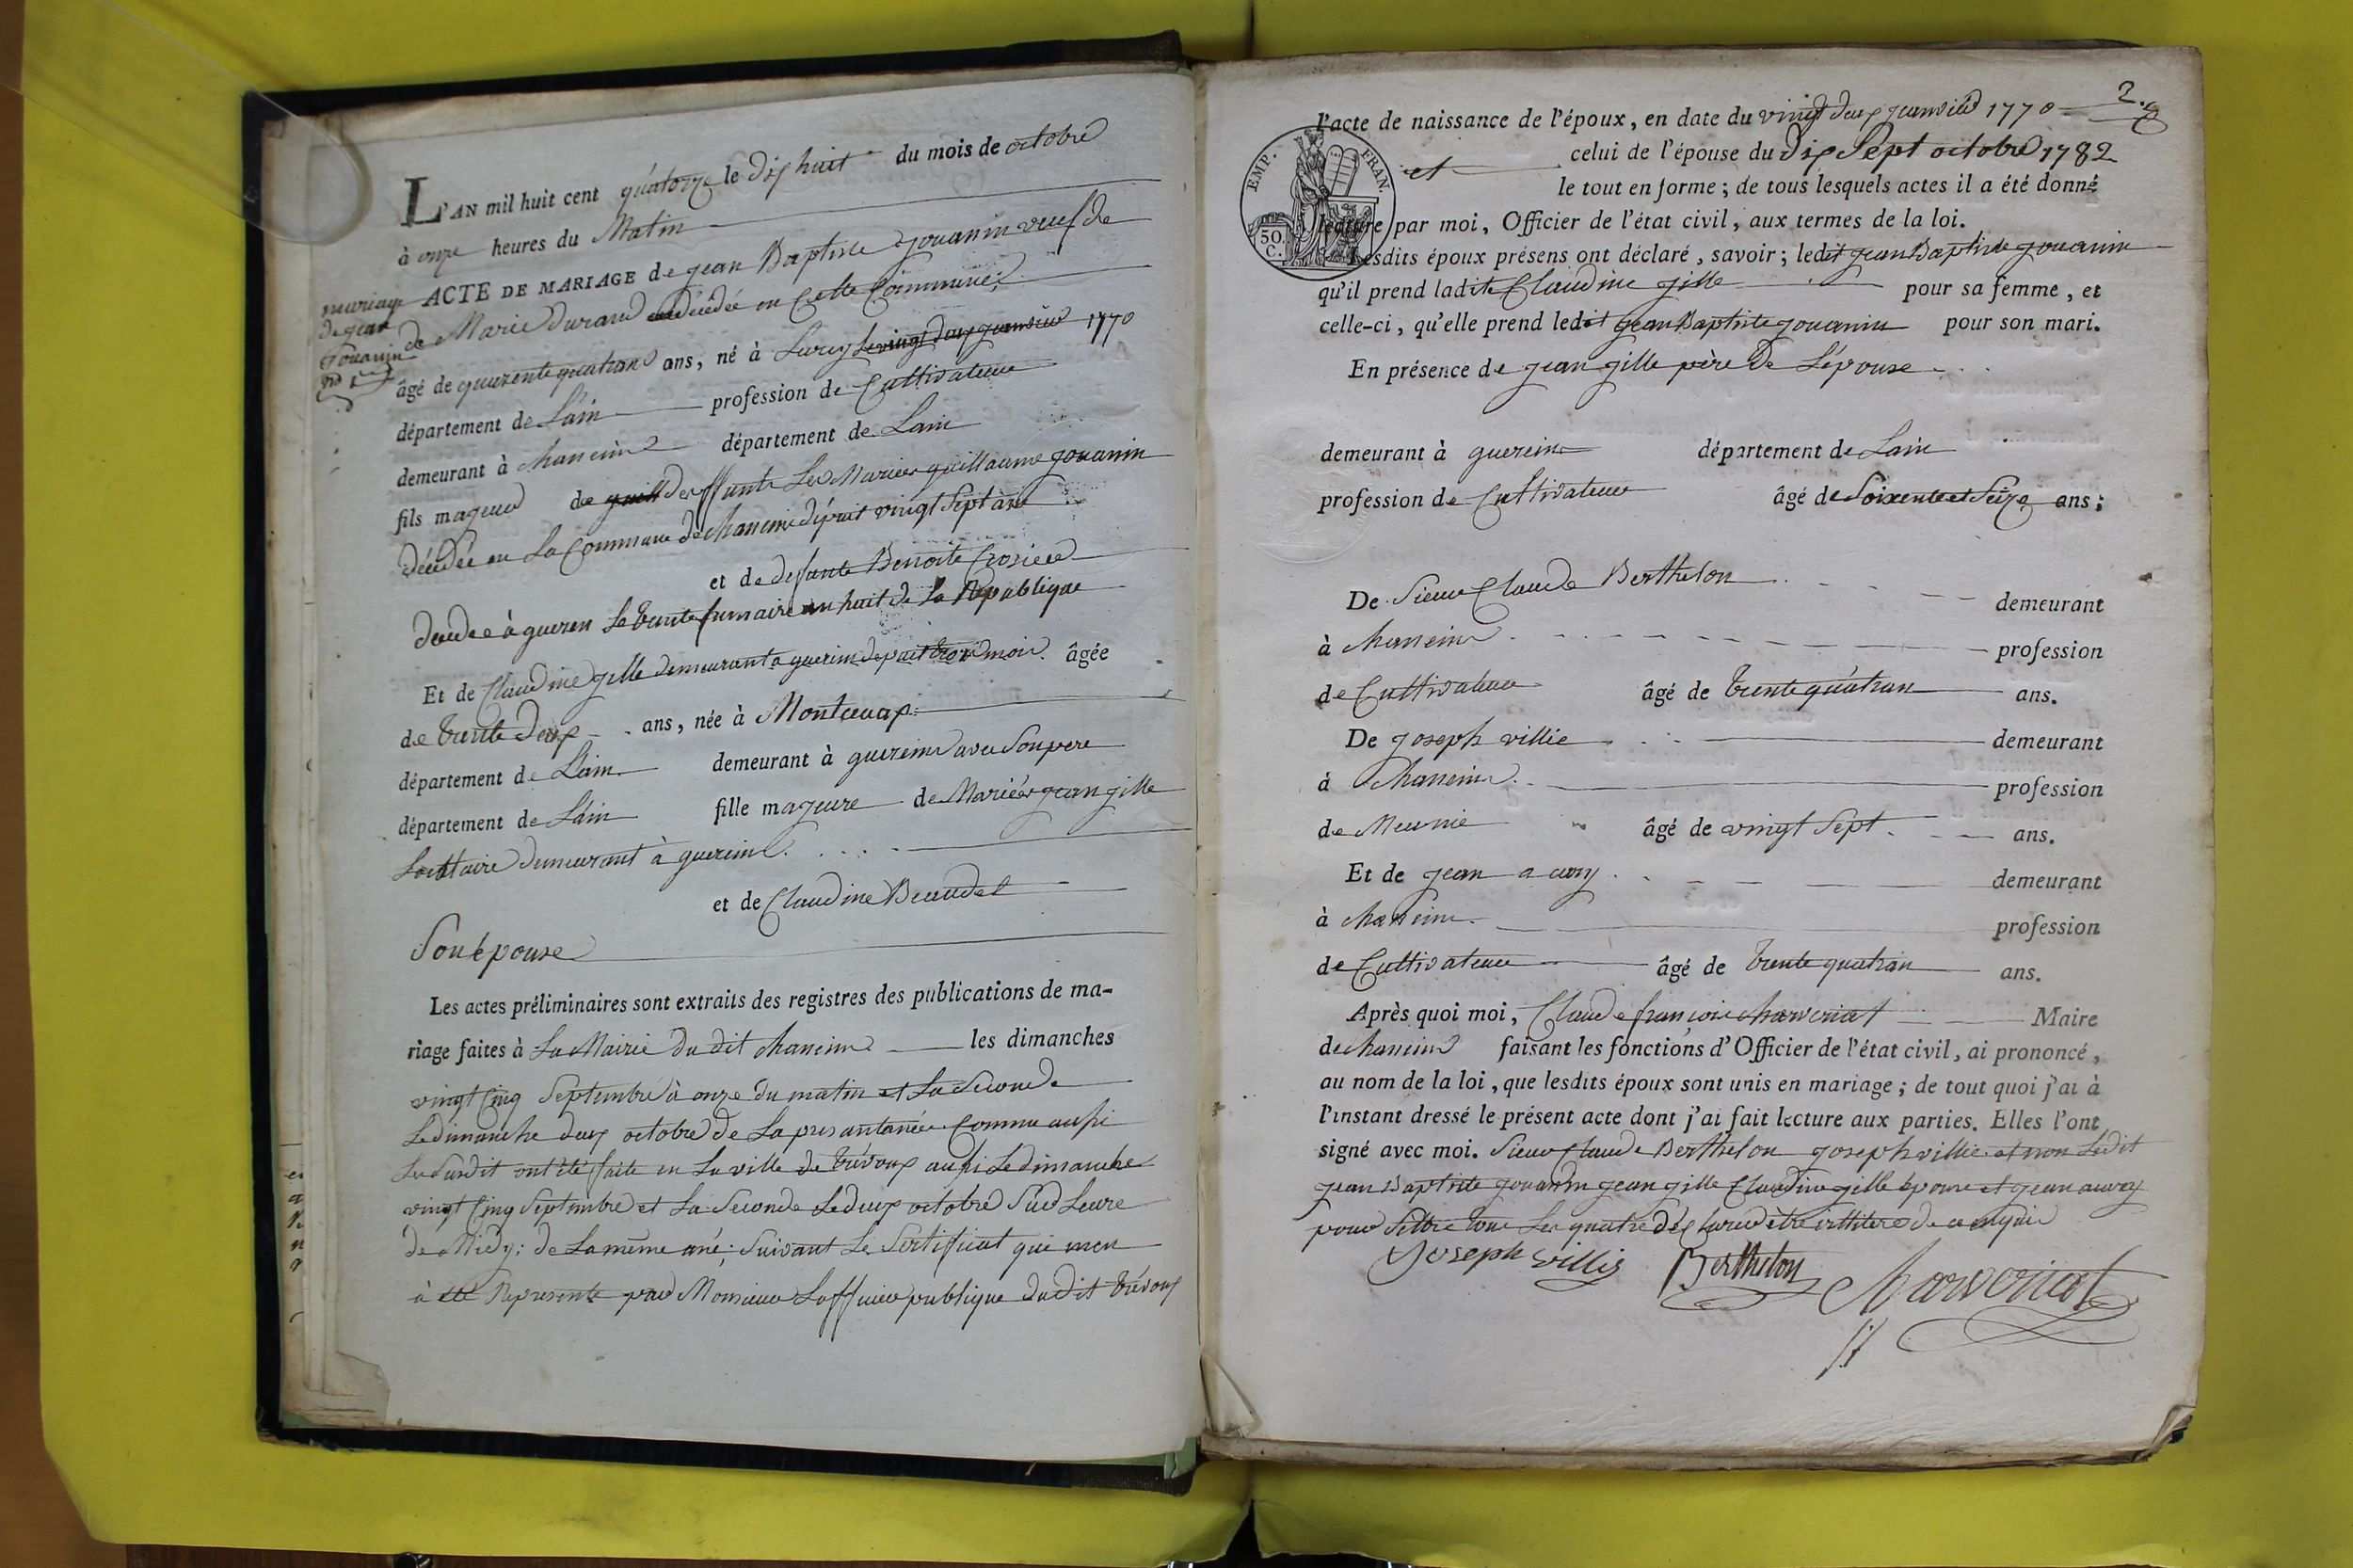 L'AN mil huit cent quátorze le dix huit du mois de octobre
à onze heures du Matin
mariage
de jean
Gouanin
ACTE DE MARIAGE de jean Baptiste gouanin veuf de
de Marie durand decédée en Cette Commune;
âgé de quarente quatran ans, né à Lurcy le vingt deux janvier 1770
département de L'ain profession de Cultivateur
demeurant à chaneins département de Lain
fils majeur de deffunts Les Mariés guillaume gouanin
décédée en La Commune de chaneins dépuit vingt Sept ans
et de defunte Benoite Crosier
decdee à gueren Le trente frumaire an huit de La Republique
Et de Claudine gille demeurant a guerein depuit trois mois. âgée
de trente deux ans, née à Montceaux
département de L'ain. demeurant à guereins avec Son pere
département de L'ain fille majeure de Mariées jean gille
Locattaire demeurant à guereins.
et de Claudine Beaudet
Son épouse
Les actes préliminaires sont extraits des registres des publications de ma-
riage faites à La Mairie du dit chaneins les dimanches
vingt Cinq Septembre à onze du matin et La Seconde
Le dimanche deux octobre de La présantanée Comme aussi
Le Susdit ont été faite en La ville de trévoux aussi Le dimanche
vingt Cinq Septembre et La Seconde Le deux octobre Sur Leure
de Midy; de La même ané; Suivant Le Sertificat qui men
à été Representé par Monsieur Lofficier publique dudit trévoux
2.
l'acte de naissance de l'époux, en date du vingt deux janvier 1770
EMP. FRAN.
50.
C.
et celui de l'épouse du dix Sept octobre 1782
le tout en forme; de tous lesquels actes il a été donné
lecture par moi, Officier de l'état civil, aux termes de la loi.
Lesdits époux présens ont déclaré, savoir; ledit jean Baptiste gouanin
qu'il prend ladite Claudine gille pour sa femme, et
celle-ci, qu'elle prend ledit jean Baptiste gouanin pour son mari.
En présence de jean gille père de L'épouse
demeurant à guereins département de Lain
profession de Cultivateur âgé de Soixente et Seize ans;
De Sieur Claude Berthelon demeurant
à chaneins profession
de Cultivateur âgé de trente quátran ans.
De joseph villie demeurant
à chaneins. profession
de Meunié âgé de vingt Sept ans.
Et de jean auray demeurant
à chaneins profession
de Cultivateur âgé de trente quatran ans.
Après quoi moi, Claude françois charveriat Maire
de chaneins faisant les fonctions d'Officier de l'état civil, ai prononcé,
au nom de la loi, que lesdits époux sont unis en mariage; de tout quoi j'ai à
l'instant dressé le présent acte dont j'ai fait lecture aux parties. Elles l'ont
signé avec moi. Sieur Claude Berthelon joseph villie et non Ledit
jean Baptiste gouanin jean gille Claudine gille épouse et jean auray
pour Lettre tous Les quatre déclarer être illitere de ce enquis
Joseph villie Berthelon Charveriat